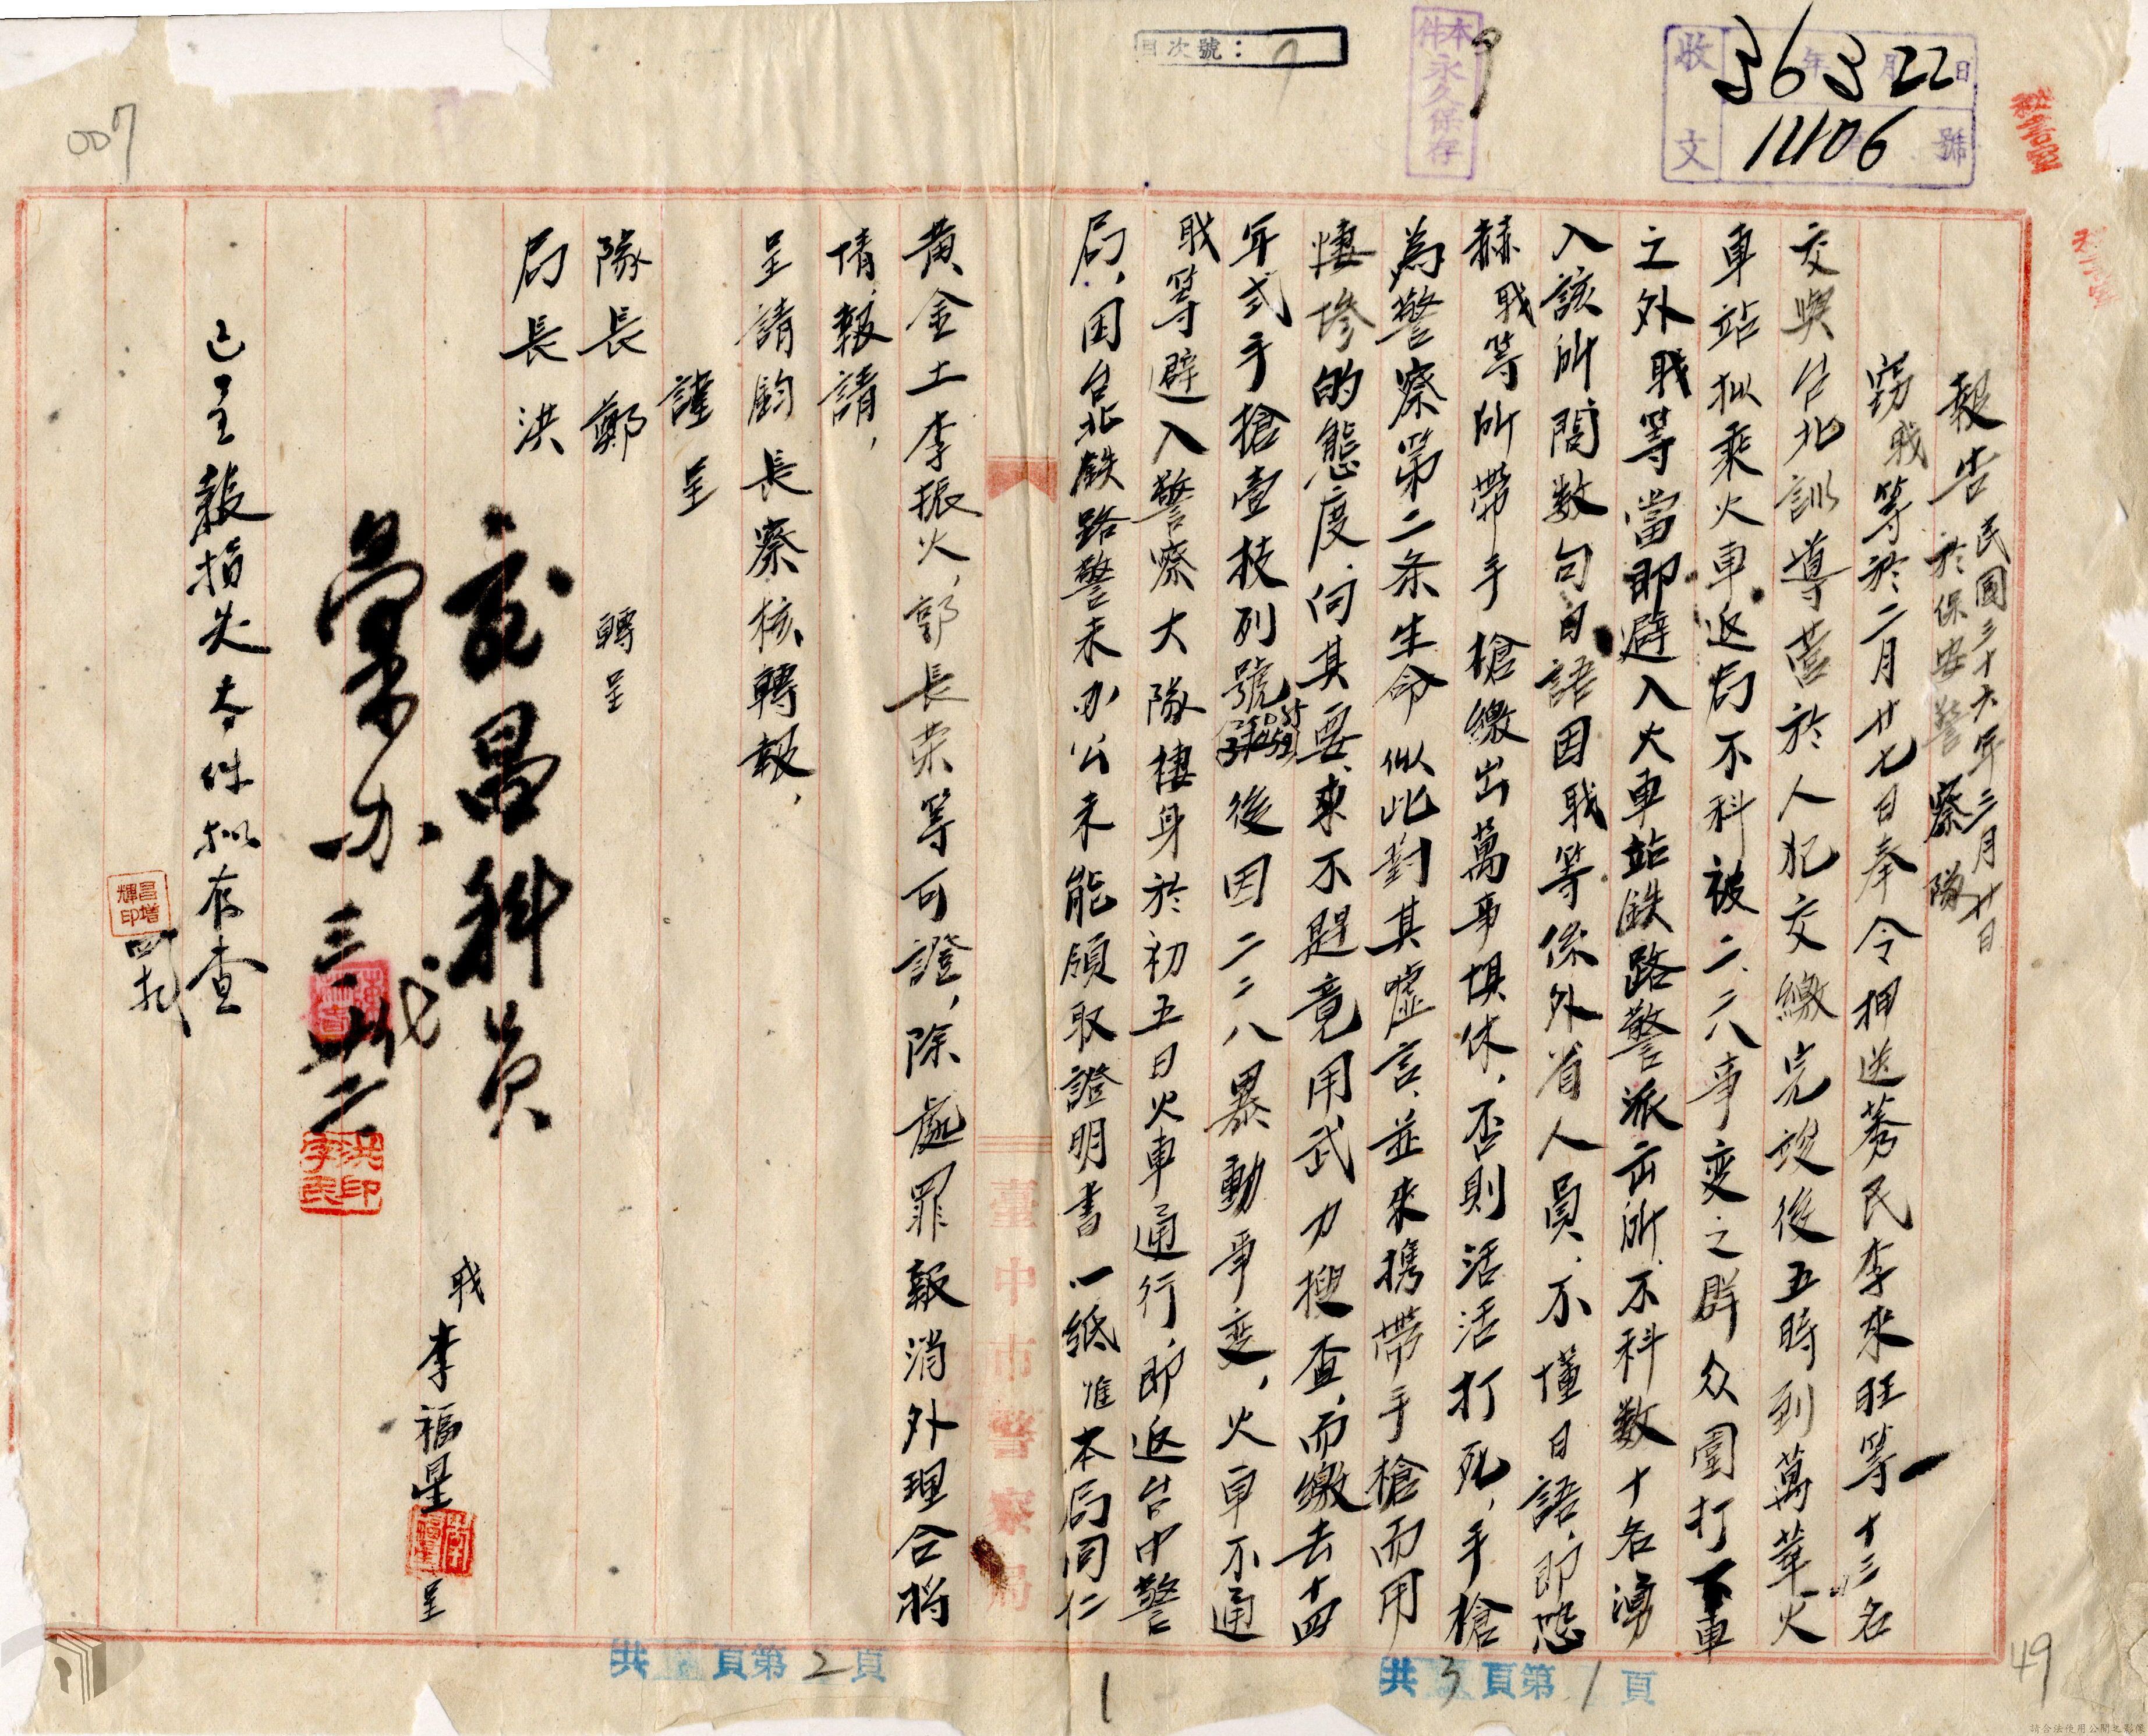 目次號：7
本件永久保存
9
收文 36年3月22日
11106號
007
報告 民國三十六年三月廿日
於保安警察隊
竊職等於二月廿七日奉令押送莠民李來旺等十三名
交與台北訓導營於人犯交繳完竣後五時到萬華火
車站拟乘火車返局不科被二、二八事変之群众圍打下車
之外职等當即避入火車站鉄路警派出所、不科数十名湧
入該所問数句日語因职等係外省人員、不懂日語、即恐
赫职等所帶手槍繳出萬事俱休，否則活活打死，手槍
為警察第二条生命似此對其噓言、並來携帶手槍而用
悽慘的態度、向其要求不題竟用武力搜查、而繳去十四
年式手槍壹枝列號後因二二八暴動事変，火車不通
职等避入警察大隊棲身於初五日火車通行、即返台中警
局，因台北鉄路警未办公未能領取證明書一紙惟本局同仁
臺中市警察局
黄金土李振火，郭長荣等可證，除處罪報消外理合将
情，報請，
呈請鈞長察核轉報，
謹呈
隊長鄭 轉呈
局長洪
职李福星呈
昌科員
彙办
洪字民印
已呈報損失本件拟存查
昌增輝印
共3頁第1頁
共頁第2頁
1
49
請合法使用公開之影像